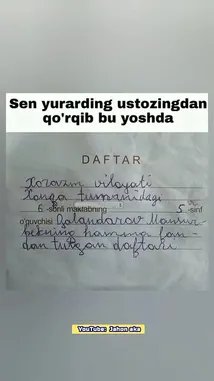 Sen yurarding ustozingdan
qo'rqib bu yoshda
DAFTAR
Xorazm viloyati
Xonqa tumanidagi
6 -sonli maktabning 5 -sinf
o'quvchisi Qalandarov Mansur-
bekning hamma fan-
dan tutgan daftari
YouTube: Jahon aka